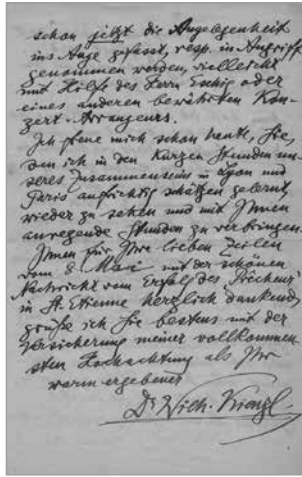 schon jetzt die Angelegenheit
ins Auge gefasst, resp. in Angriff
genommen werden, vielleicht
mit Hilfe des Herrn Eschig oder
eines anderen bewährten Kon-
zert-Arrangeurs.
Ich freue mich schon heute, Sie,
den ich in den kurzen Stunden un-
seres Zusammenseins in Lyon und
Paris aufrichtig schätzen gelernt,
wieder zu sehen und mit Ihnen
anregende Stunden zu verbringen.
Ihnen für Ihre lieben Zeilen
vom 8. Mai mit der schönen
Nachricht vom Erfolg des "Prêcheur"
in St. Etienne herzlich dankend,
grüße ich Sie bestens mit der
Versicherung meiner vollkommen-
sten Hochachtung als Ihr
warm ergebener
Dr Wilh. Kienzl